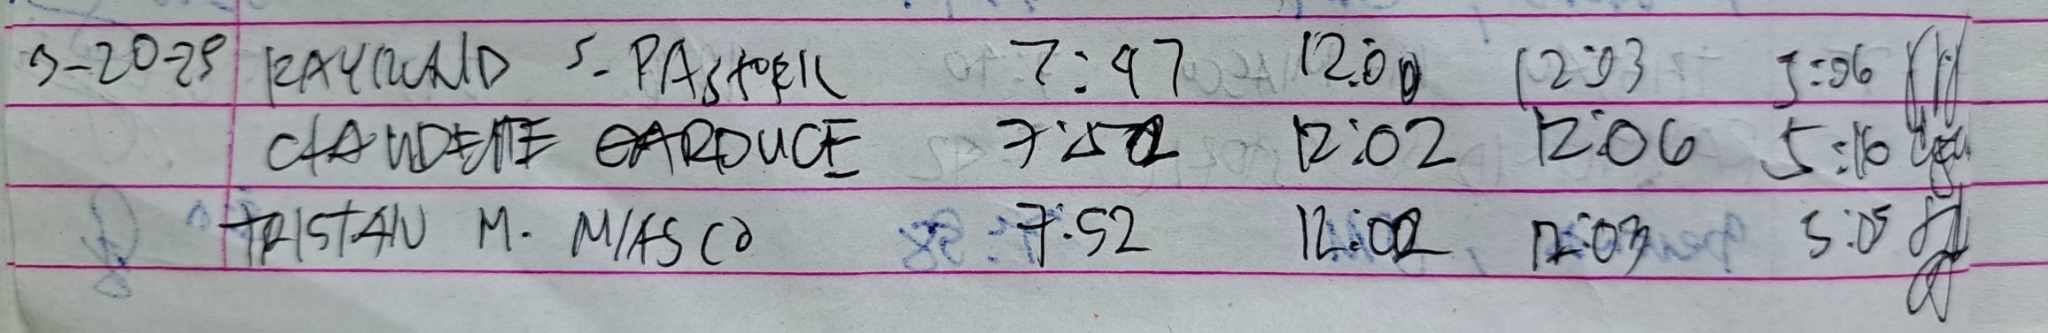 3-20-25 RAYMUND S. PASTOR 7:47 12:00 12:03 5:06
CLAUDETTE GARDUCE 7:52 12:02 12:06 5:16
TRISTAN M. MIASCO 7:52 12:02 12:03 5:05